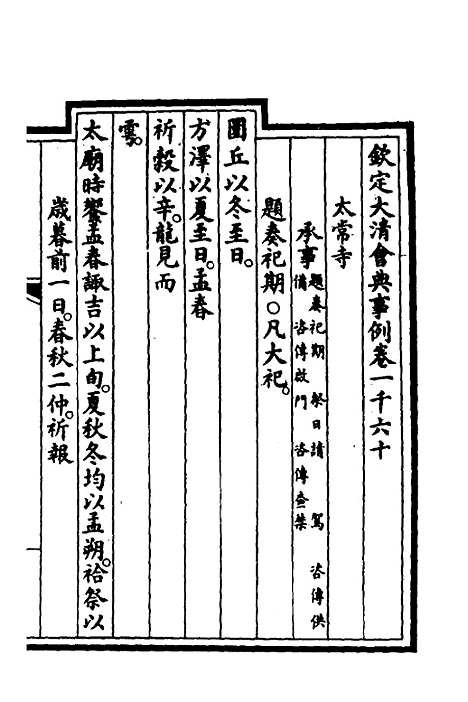 欽定大清會典事例卷一千六十
太常寺
承事題奏祀期 祭日請 駕 咨傳供
備 咨傳啟門 咨傳查禁
題奏祀期○凡大祀。
圜丘以冬至日。
方澤以夏至日。孟春
祈穀以辛。龍見而
雩。
太廟時饗孟春諏吉以上旬。夏秋冬均以孟朔。祫祭以
歲暮前一日。春秋二仲。祈報